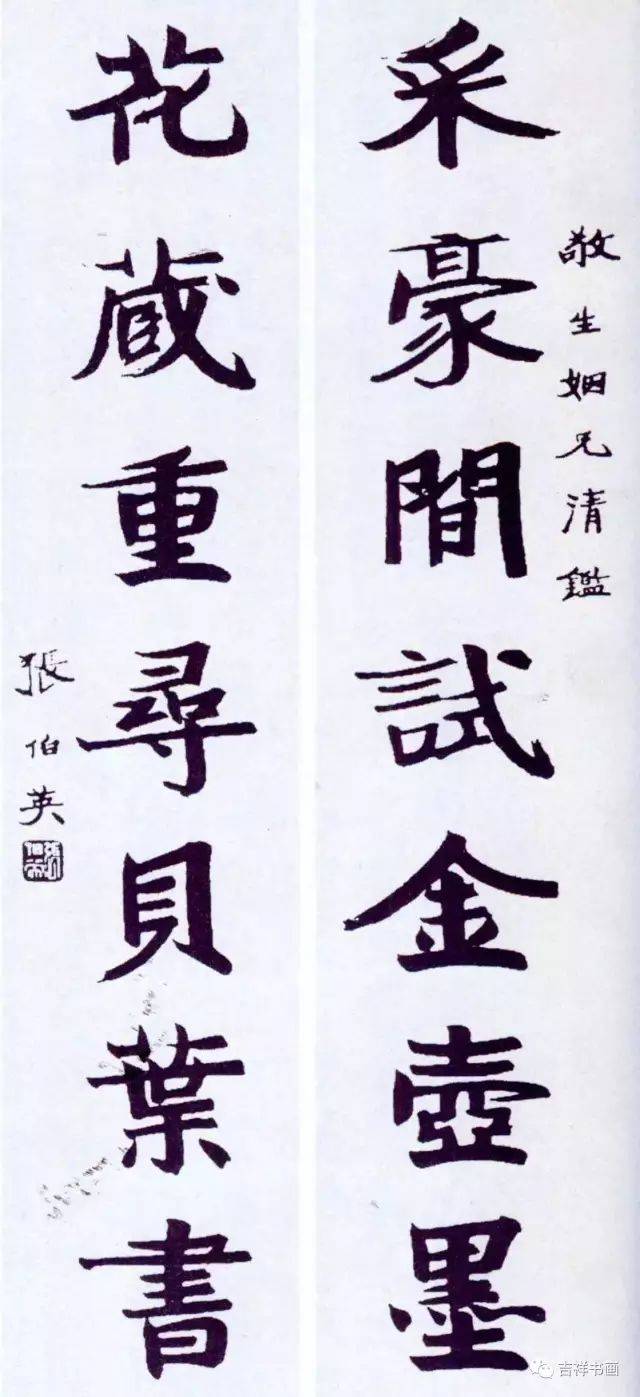 敬生姻兄清鑑
采豪閒試金壺墨
花蔵重尋貝葉書
張伯英
吉祥书画